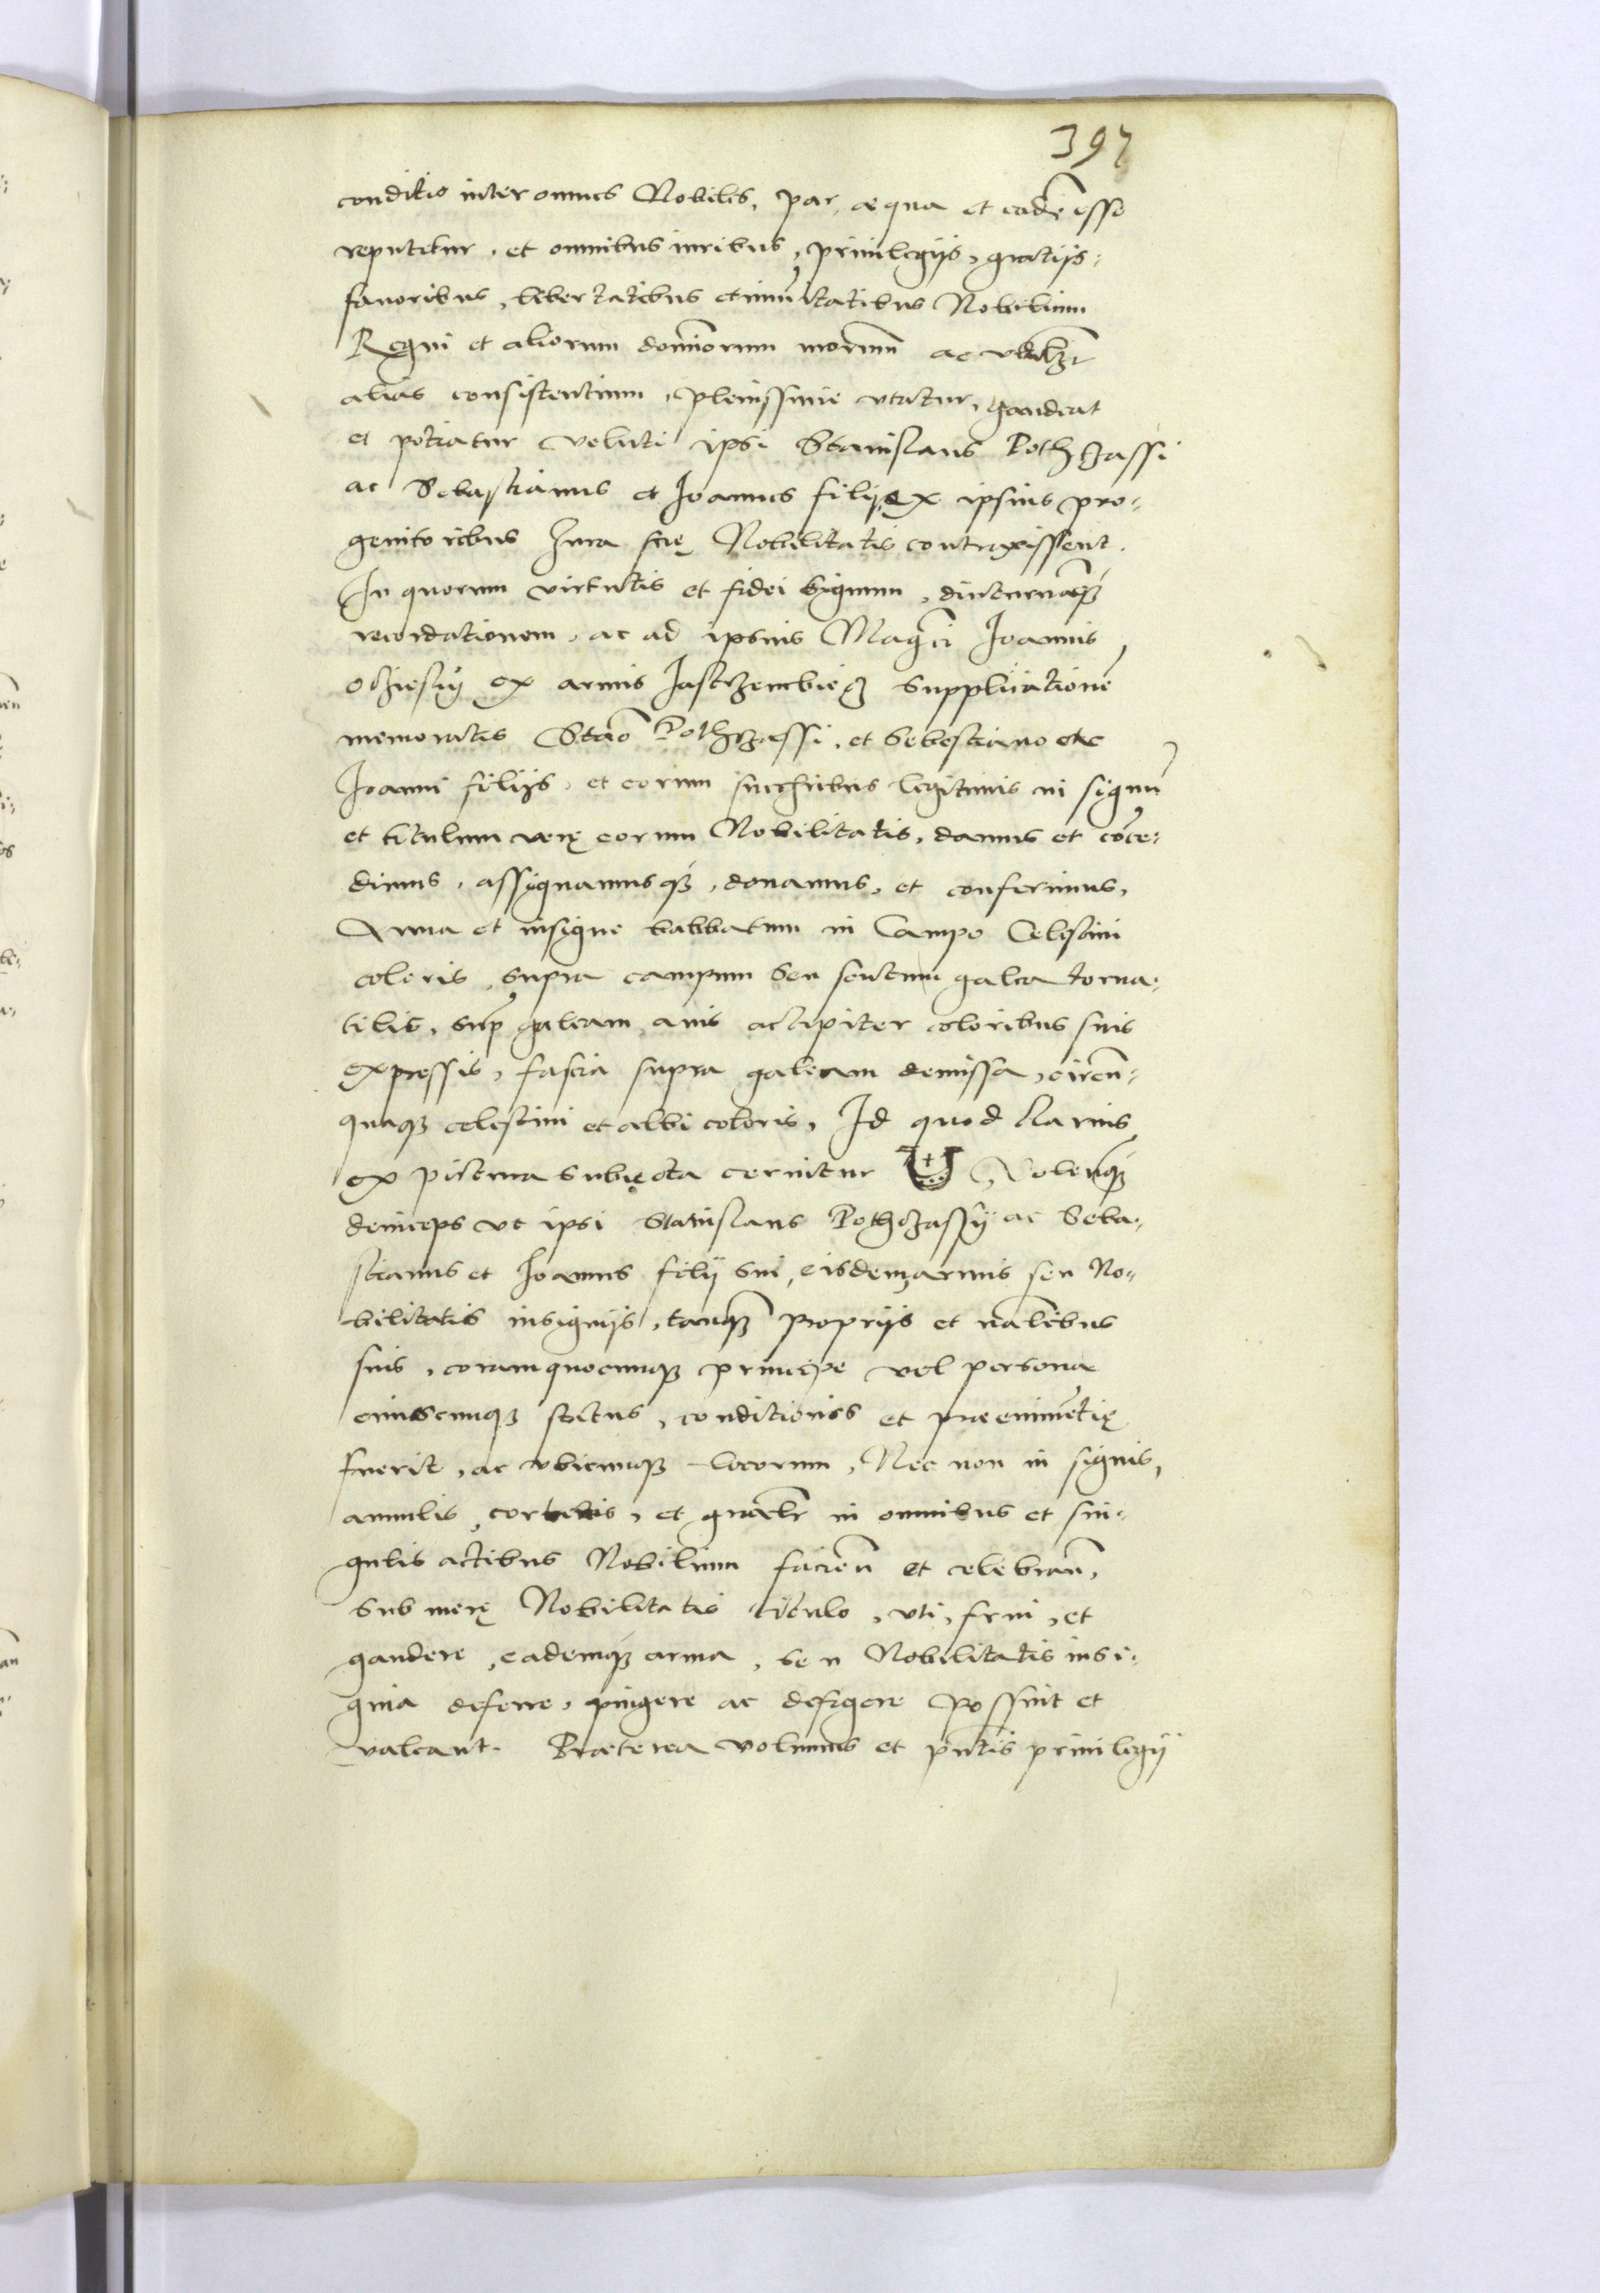 397
conditio inter omnes Nobiles, par, aequa et eadē esse
reputetur, et omnibus iuribus, priuilegijs, gratijs,
fauoribus, libertatibus et imūitatibus Nobilium
Regni et aliorum dominiorum nrorum ac
alias consistentium, plenissime vtatur, gaudeat
et potiatur veluti ipsi Stanislaus Pothzassi
ac Sebastianus et Joannes filij, ex ipsius pro-
genitoribus Iura Nobilitatis contraxissent.
In quorum virtutis et fidei signum, diuturnāq3
recordationem, ac ad ipsius Magci Joannis
Ocziesky ex armis Jastrzembiecz Supplicationē
memoratis Stāo Pothzassi, et Sebestiano etc
Joanni filijs, et eorum succribus legitimis in signū
et titulum verę eorum Nobilitatis, damus et cōce-
dimus, assignamusq3, donamus, et conferimus,
Arma et insigne babbatum in Campo Celestini
coloris, supra campum seu scutum galea torna-
tilis, sup galeam auis accipiter coloribus suis
expressis, fascia supra galeam demissa, circū-
quaq3 celestini et albi coloris, Id quod clarius
ex pictura subiecta cernitur Volentq3
deinceps vt ipsi Stanislaus Pothzassij ac Seba-
stianus et Joannes filij sui, eisdem armis seu No-
bilitatis insignijs, tanq3 proprijs et natalibus
suis, coram quocunq3 principe vel persona
cuiuscunq3 status, conditionis et praeeminētię
fuerit, ac vbicunq3 locorum, Nec non in signis,
annulis, cortinis, et gnāltr in omnibus et sin-
gulis actibus Nobilium faciēn et celebrān,
sub merę Nobilitatis titulo, vti, frui, et
gaudere, eademq3 arma, seu Nobilitatis insi-
gnia deferre, pingere ac defigere possint et
valeant. Praeterea volumus et pntis priuilegij